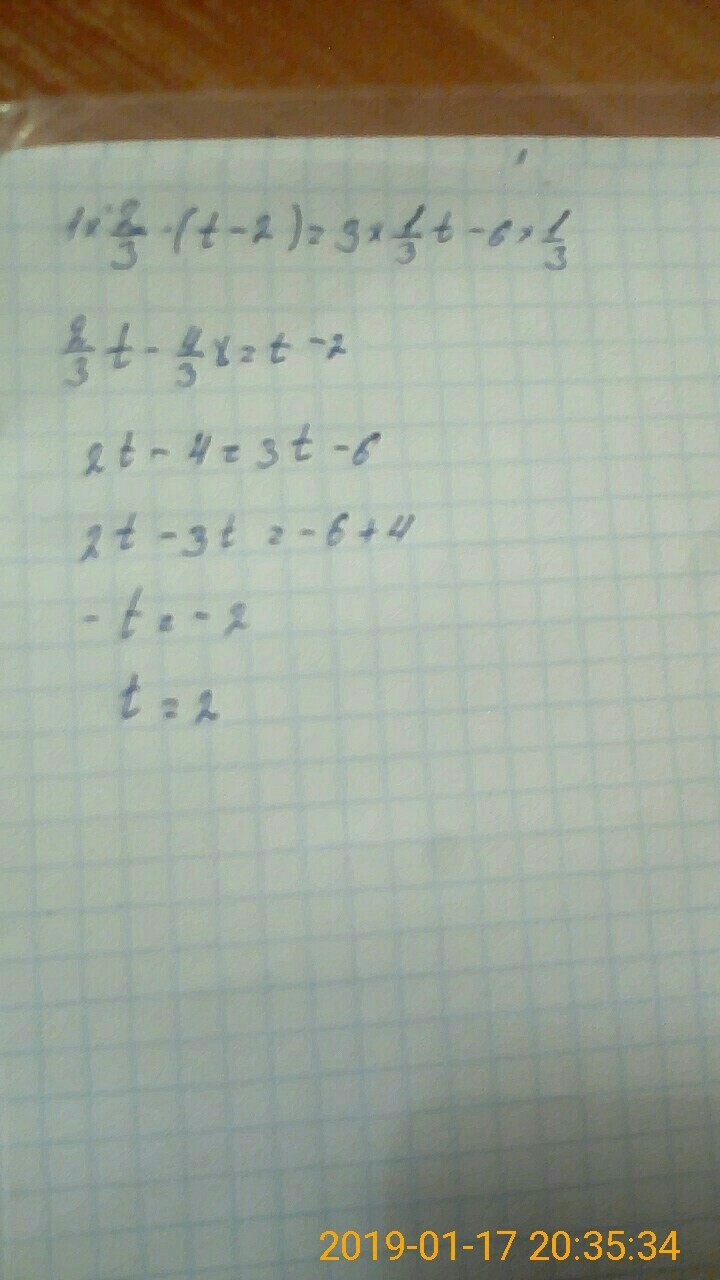 1 × 2/3 · (t - 2) = 3 × 1/3 t - 6 × 1/3
2/3 t - 4/3 x = t - 2
2t - 4 = 3t - 6
2t - 3t = -6 + 4
- t = - 2
t = 2
2019-01-17 20:35:34